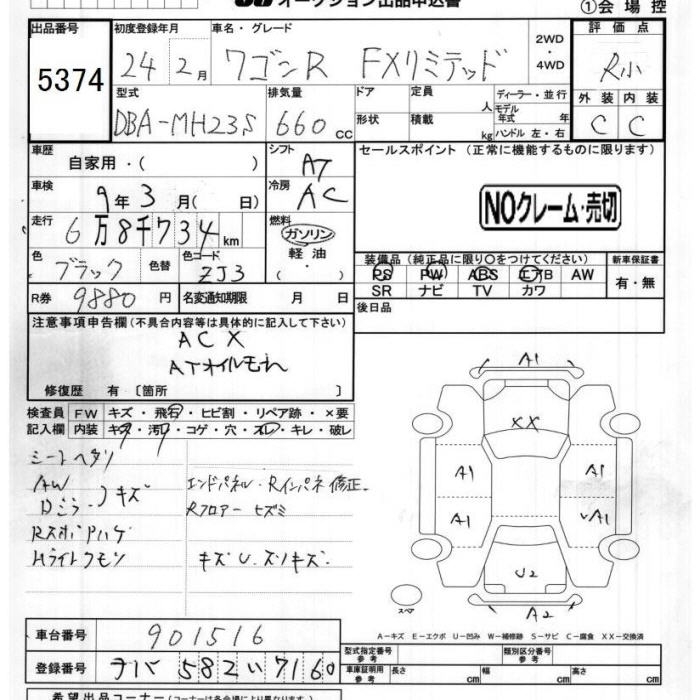 オークション出品申込書
①会場控
出品番号 初度登録年月 車名・グレード 評価点
5374 24 2月 ワゴンR FXリミテッド 2WD ・ 4WD R小
型式 排気量 ドア 定員 人 ディーラー・並行 外装 内装
DBA-MH23S 660cc 形状 積載 kg モデル年式 年 ハンドル 左・右 C C
車歴 自家用・( ) シフト AT セールスポイント (正常に機能するものに限ります)
車検 9年3月( 日) 冷房 AC
NOクレーム・売切
走行 6万8千734km 燃料 ガソリン 軽油 ・( )
色 ブラック 色替 色コード ZJ3
装備品(純正品に限り○をつけてください) 新車保証書
PS PW ABS エアB AW 有・無
SR ナビ TV カワ
R券 9880円 名変通知期限 月 日 後日品
注意事項申告欄(不具合内容等は具体的に記入して下さい)
ACX
ATオイルモレ
修復歴 有〔箇所 〕
検査員 FW キズ・飛石・ヒビ割・リペア跡・×要
記入欄 内装 キズ・汚れ・コゲ・穴・スレ・キレ・破レ
シートヘタリ
AW
Dミラー キズ エンドパネル・Rインパネ修正
Rフロアー ヒズミ
HライトクモリキズU.スリキズ.
A1
XX
A1 A1
A1 A1
U2
スペア A2
A-キズ E-エクボ U-凹み W-補修跡 S-サビ C-腐食 XX-交換済
車台番号 901516
登録番号 582 い 7160
型式指定番号 参考 類別区分番号 参考
車庫証明用 参考 長さ cm 幅 cm 高さ cm
希望出品コーナー(コーナーは各会場により異なります)